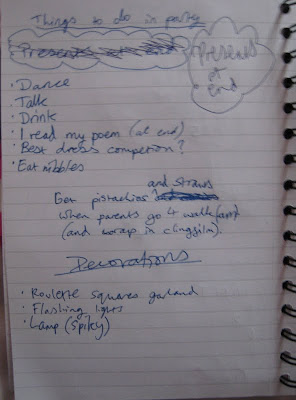 Things to do in party
Presents
Presents
at
end
· Dance
· Talk
· Drink
· I read my poem (at end)
· Best dress competion?
· Eat nibbles
and straws
Get pistachios
when parents go 4 walk
(and wrap in clingfilm).
Decorations
· Roulette squares garland
· Flashing lights
· Lamp (spiky)